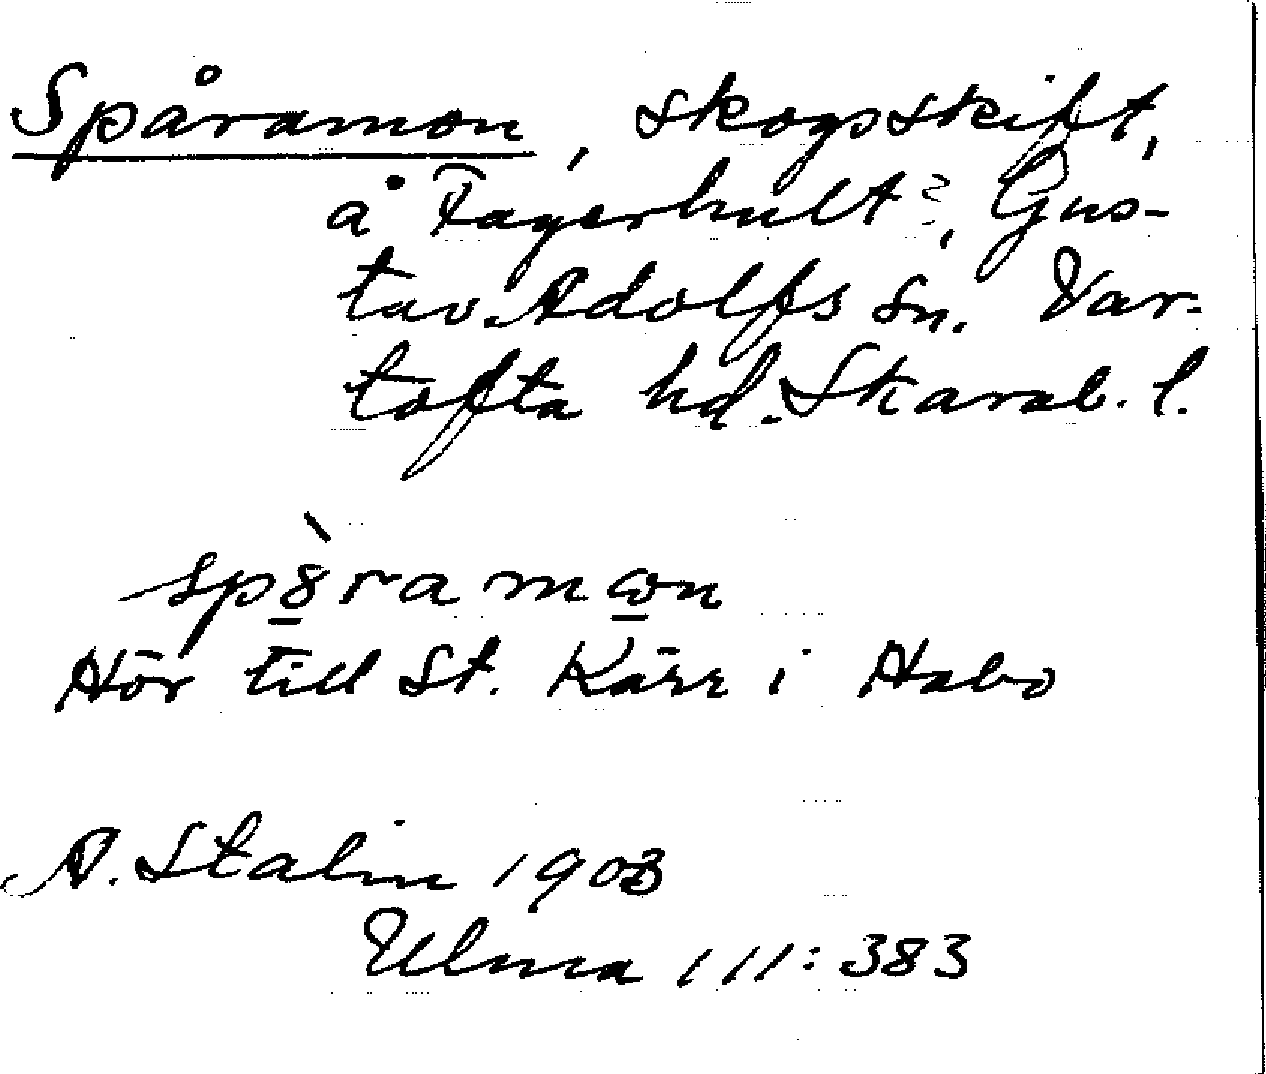 Spåramon, skogsskift,
å Fagerhult?, Gus-
tav Adolfs sn. Var-
tofta hd. Skarab. l.
spòramωn
Hör till St. Kärr i Habo
A. Stalin 1903
Ulma 111:383